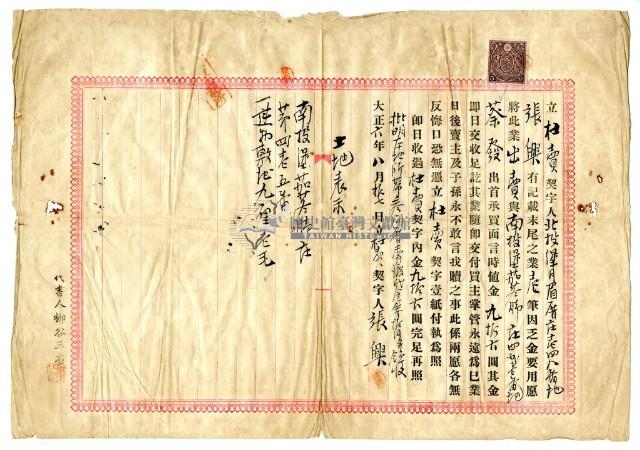 立杜賣契字人北投堡月眉厝庄壱四八番地
張興有記載末尾之業壱筆因乏金要用愿
將此業出賣與南投堡茄苳脚庄四 番地
蔡發出首承買面言時値金九拾六圓其金
即日交收足訖其業隨卽交付買主掌管永遠爲已業
日後賣主及子孫永不敢言找贖之事此係兩愿各無
反悔口恐無憑立杜賣契字壹紙付執爲照
卽日收過杜賣契字內金九拾六圓完足再照
批明在地所第
大正六年八月拾七日杜賣契字人張興
土地表示
南投堡茄苳脚庄
第四壱五番
一建物敷地九厘
代書人柳谷三
歷史館臺灣文獻館
TAIWAN HISTORICA